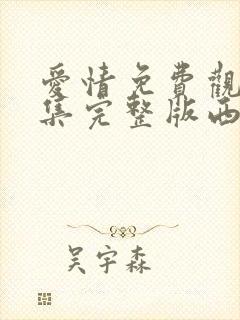 愛情免費觀
集完整版西
吴宇森